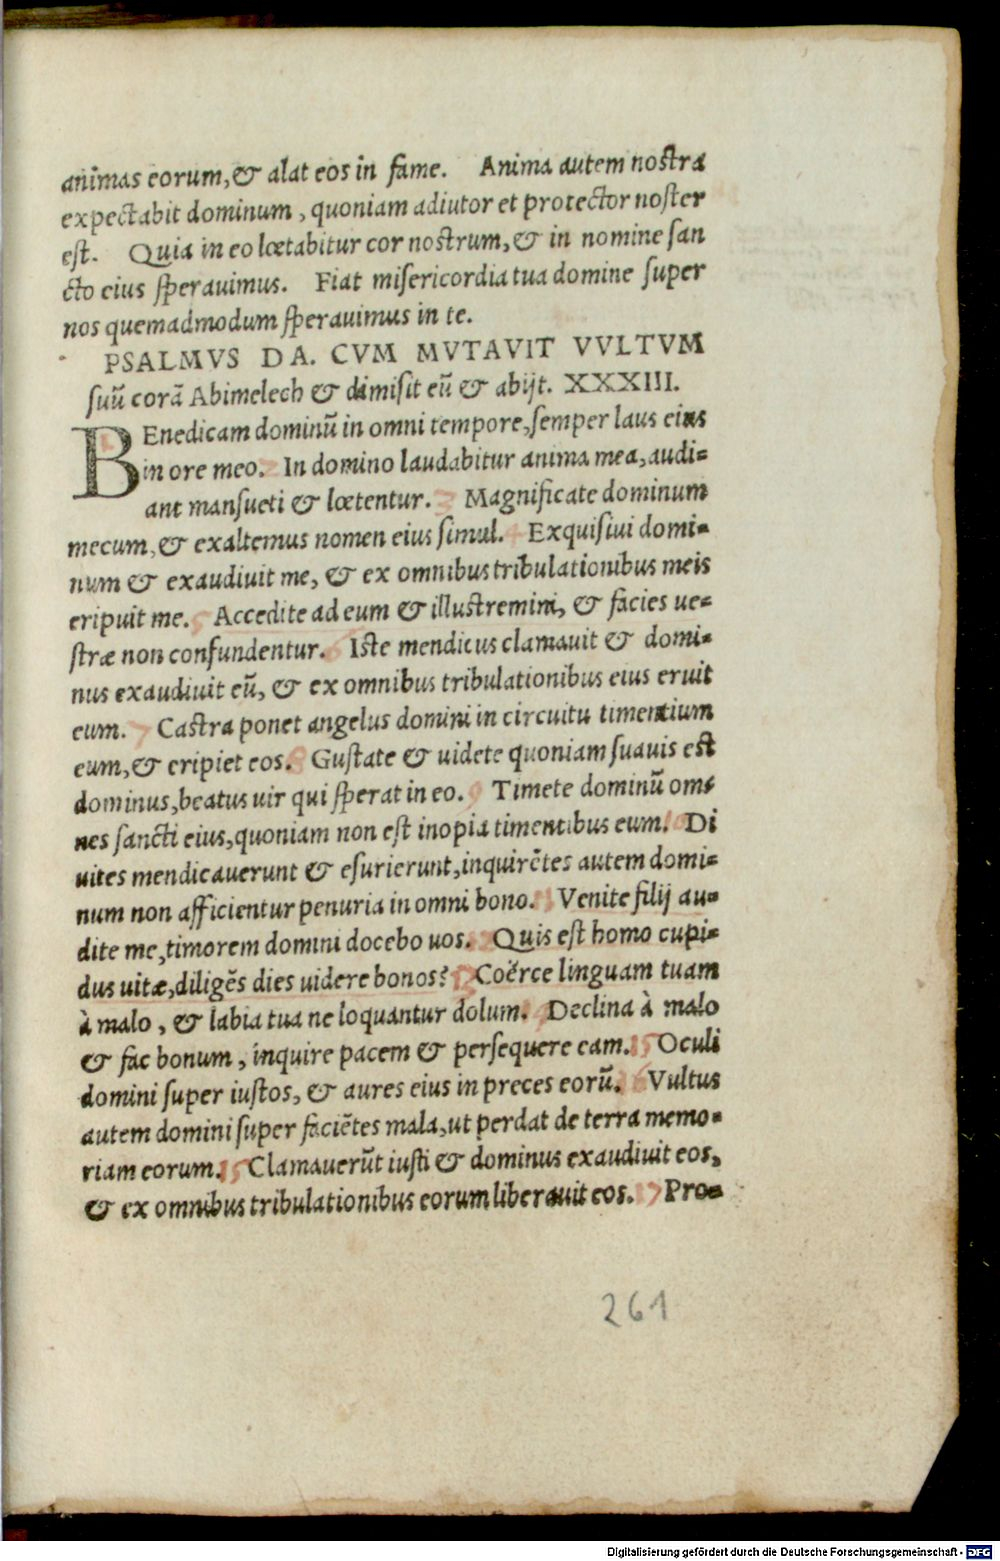 animas eorum, & alat eos in fame. Anima autem nostra
expectabit dominum, quoniam adiutor et protector noster
est. Quia in eo lœtabitur cor nostrum, & in nomine san
cto eius sperauimus. Fiat misericordia tua domine super
nos quemadmodum sperauimus in te.
PSALMVS DA. CVM MVTAVIT VVLTVM
suū corā Abimelech & dimisit eū & abijt. XXXIII.
BEnedicam dominū in omni tempore, semper laus eius
in ore meo. 2 In domino laudabitur anima mea, audi-
ant mansueti & lœtentur. 3 Magnificate dominum
mecum, & exaltemus nomen eius simul. 4 Exquisiui domi-
num & exaudiuit me, & ex omnibus tribulationibus meis
eripuit me. 5 Accedite ad eum & illustremini, & facies ue-
stræ non confundentur. 6 Iste mendicus clamauit & domi-
nus exaudiuit eū, & ex omnibus tribulationibus eius eruit
eum. 7 Castra ponet angelus domini in circuitu timentium
eum, & eripiet eos. 8 Gustate & uidete quoniam suauis est
dominus, beatus uir qui sperat in eo. 9 Timete dominū om-
nes sancti eius, quoniam non est inopia timentibus eum. 10 Di
uites mendicauerunt & esurierunt, inquirētes autem domi-
num non afficientur penuria in omni bono. 11 Venite filij au-
dite me, timorem domini docebo uos. Quis est homo cupi-
dus uitæ, diligēs dies uidere bonos? 13 Coërce linguam tuam
à malo, & labia tua ne loquantur dolum. Declina à malo
& fac bonum, inquire pacem & persequere eam. 15 Oculi
domini super iustos, & aures eius in preces eorū. 16 Vultus
autem domini super faciētes mala, ut perdat de terra memo-
riam eorum. 15 Clamauerūt iusti & dominus exaudiuit eos,
& ex omnibus tribulationibus eorum liberauit eos. 17 Pro-
261
Digitalisierung gefördert durch die Deutsche Forschungsgemeinschaft - DFG